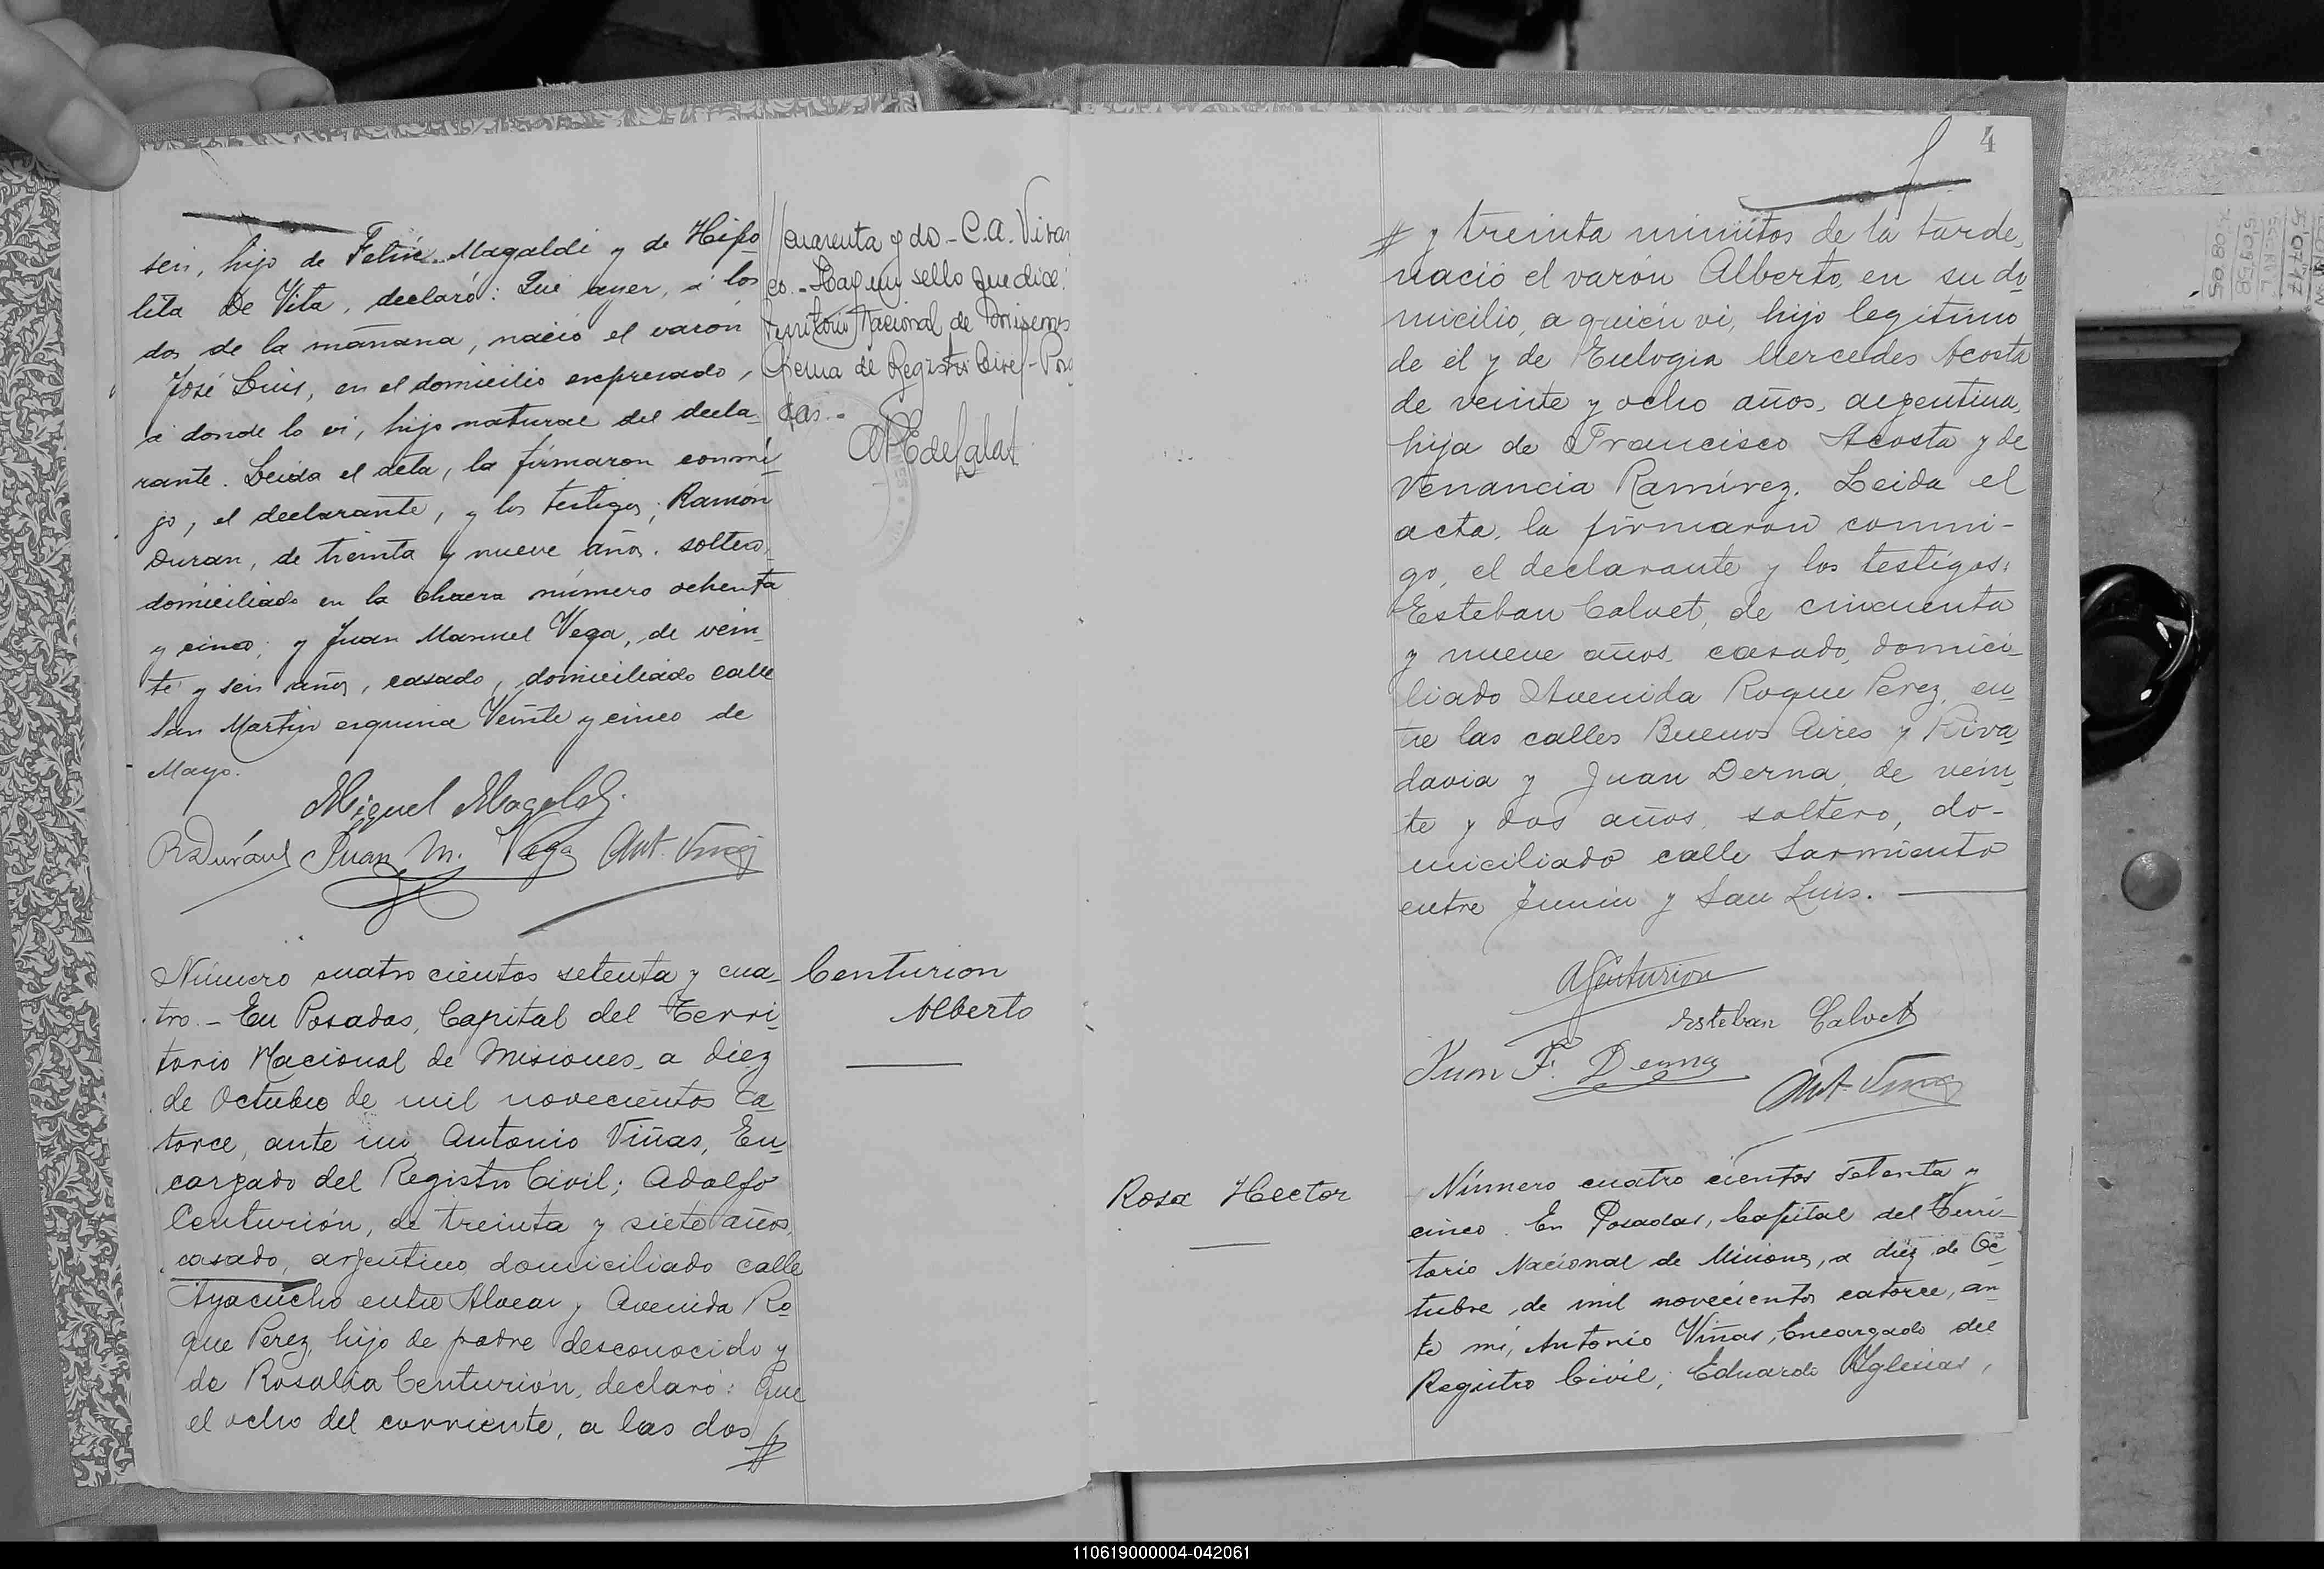 seis, hijo de Felix Magaldi y de Hipo
lita De Vita, declaró: Que ayer, a las
dos de la mañana, nació el varon
José Luis, en el domicilio expresado,
a donde lo vi, hijo natural del decla
rante. Leida el acta, la firmaron conmi
go, el declarante, y los testigos; Ramón
Duran, de treinta y nueve años, soltero,
domiciliado en la chacra número ochenta
y cinco; y Juan Manuel Vega, de vein
te y seis años, casado, domiciliado calle
San Martin esquina Veinte y cinco de
Mayo.
Miguel Magaldi
R Durán Juan M. Vega Ant. Viñas
Número cuatro cientos setenta y cua
tro.- En Posadas, Capital del Terri
torio Nacional de Misiones, a diez
de Octubre de mil novecientos ca
torce, ante mi, Antonio Viñas, En
cargado del Registro Civil; Adolfo
Centurión, de treinta y siete años,
casado, argentino, domiciliado calle
Ayacucho entre Alvear y Avenida Ro
que Perez, hijo de padre desconocido y
de Rosalia Centurión, declaró: Que
el ocho del corriente, a las dos #
//cuarenta y do - C.A. Viva
co.- Hay un sello que dice:
Territorio Nacional de Misiones
Oficina de Registro Civil - Posa
das.-
Centurion
Alberto
4
# y treinta minutos de la tarde,
nació el varón Alberto, en su do
micilio, a quien vi, hijo legitimo
de él y de Eulogia Mercedes Acosta
de veinte y ocho años, argentina,
hija de Francisco Acosta y de
Venancia Ramírez. Leida el
acta, la firmaron conmi-
go, el declarante y los testigos:
Esteban Calvet, de cincuenta
y nueve años, casado, domici
liado Avenida Roque Perez, en
tre las calles Buenos Aires y Riva
davia y Juan Derna, de vein
te y dos años, soltero, do-
miciliado calle Sarmiento
entre Junin y San Luis.
A Centurion
Esteban Calvet
Juan F. Derna
Ant. Viñas
Rosa Hector
Número cuatro cientos setenta y
cinco. En Posadas, Capital del Terri
torio Nacional de Misiones, a diez de Oc
tubre de mil novecientos catorce, an
te mi, Antonio Viñas, Encargado del
Registro Civil; Eduardo Yglesias,
110619000004-042061